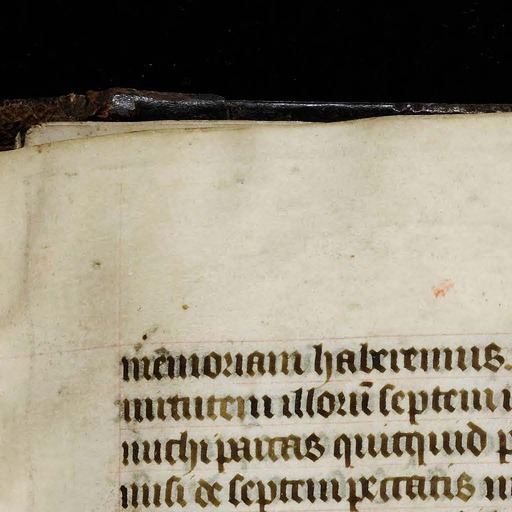 memoriam haberemus.
uirtutem illorū septem
michi parcas quicquid
nisi de septem peccatis